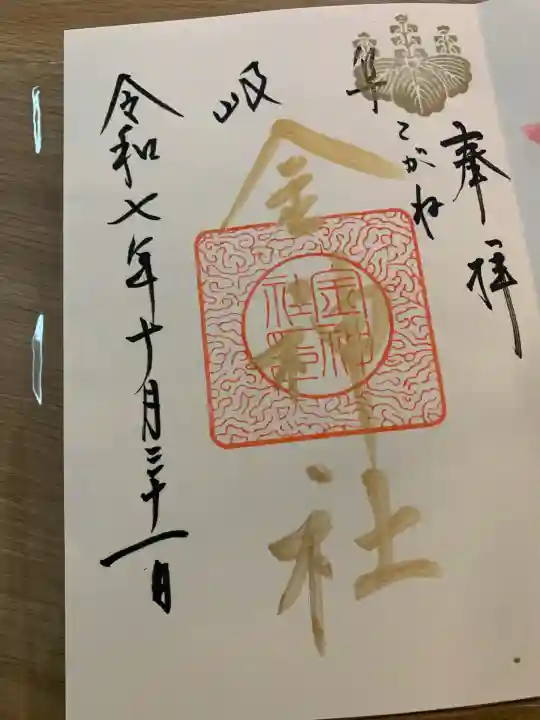 奉拝
こがね
金神社
岐阜
金神社
令和七年十月三十一日